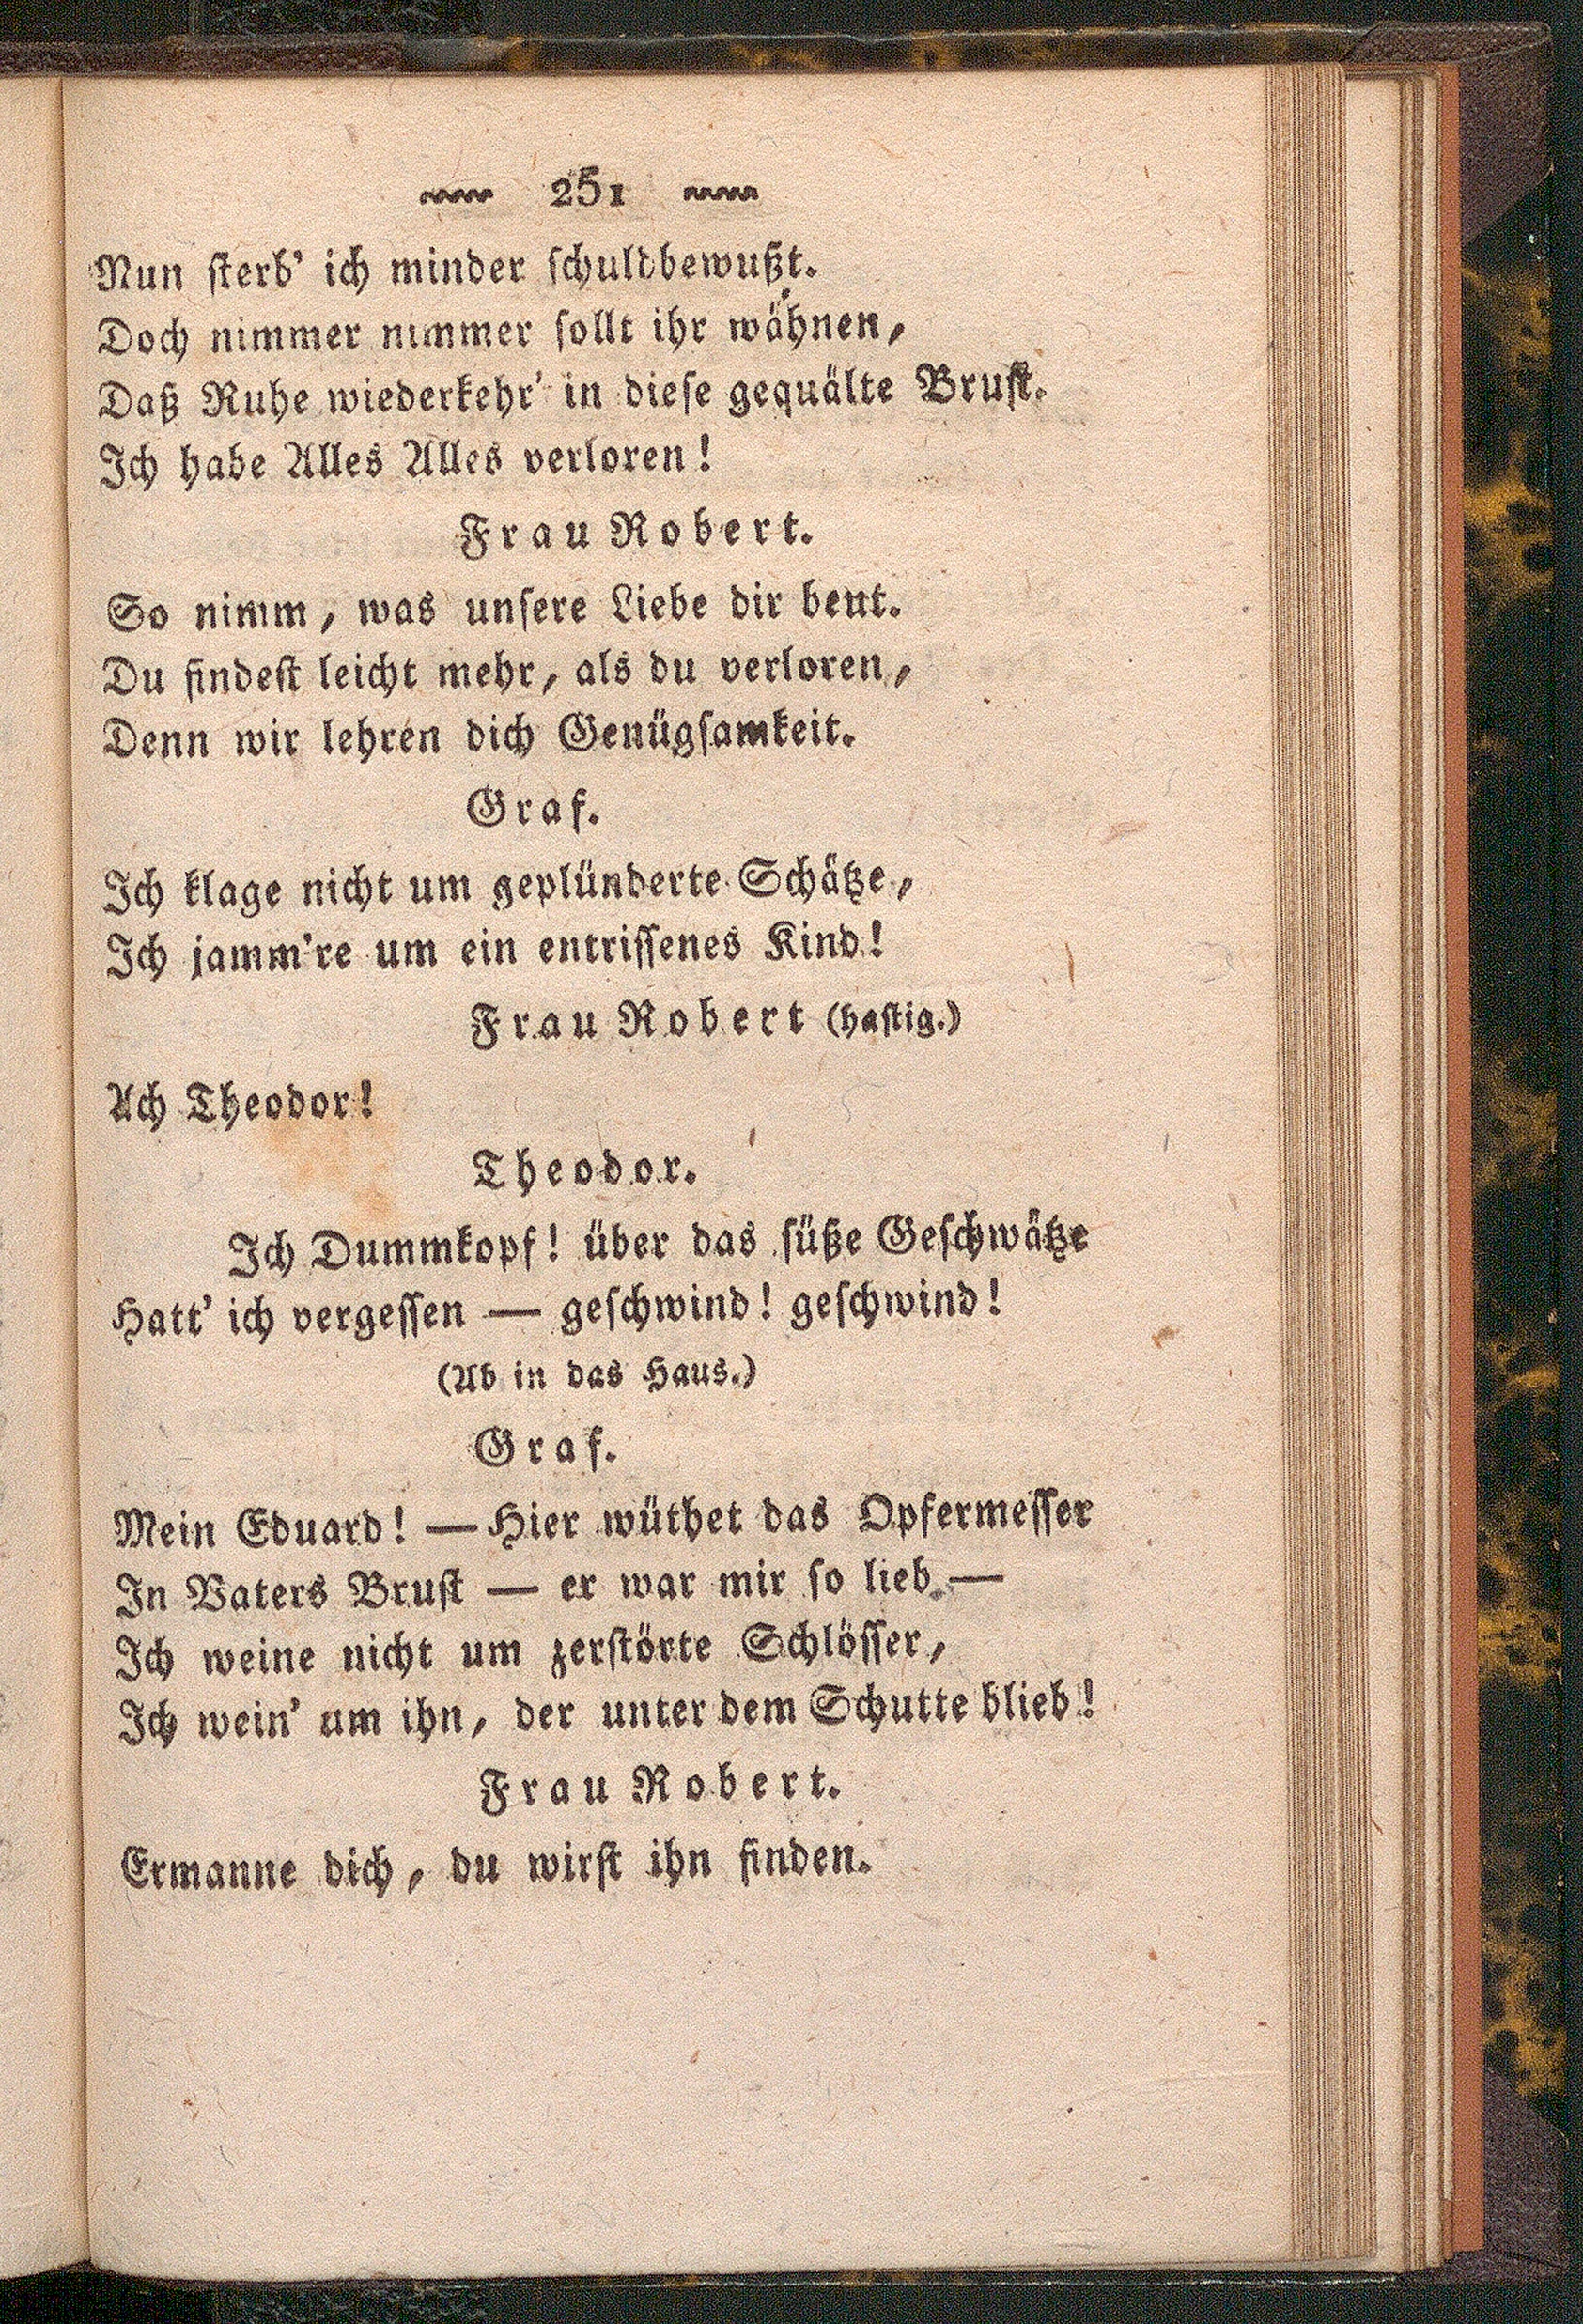 251
Nun sterb' ich minder schuldbewußt.
Doch nimmer nimmer sollt ihr wähnen,
Daß Ruhe wiederkehr' in diese gequälte Brust.
Ich habe Alles Alles verloren!
Frau Robert.
So nimm, was unsere Liebe dir beut.
Du findest leicht mehr, als du verloren,
Denn wir lehren dich Genügsamkeit.
Graf.
Ich klage nicht um geplünderte Schätze,
Ich jamm're um ein entrissenes Kind!
Frau Robert (hastig.)
Ach Theodor!
Theodor.
Ich Dummkopf! über das süße Geschwätze
Hatt' ich vergessen — geschwind! geschwind!
(Ab in das Haus.)
Graf.
Mein Eduard! — Hier wüthet das Opfermesser
In Vaters Brust — er war mir so lieb —
Ich weine nicht um zerstörte Schlösser,
Ich wein' um ihn, der unter dem Schutte blieb!
Frau Robert.
Ermanne dich, du wirst ihn finden.